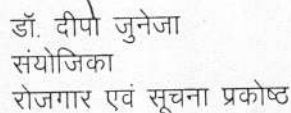 डॉ. दीपो जुनेजा
संयोजिका
रोजगार एवं सूचना प्रकोष्ठ